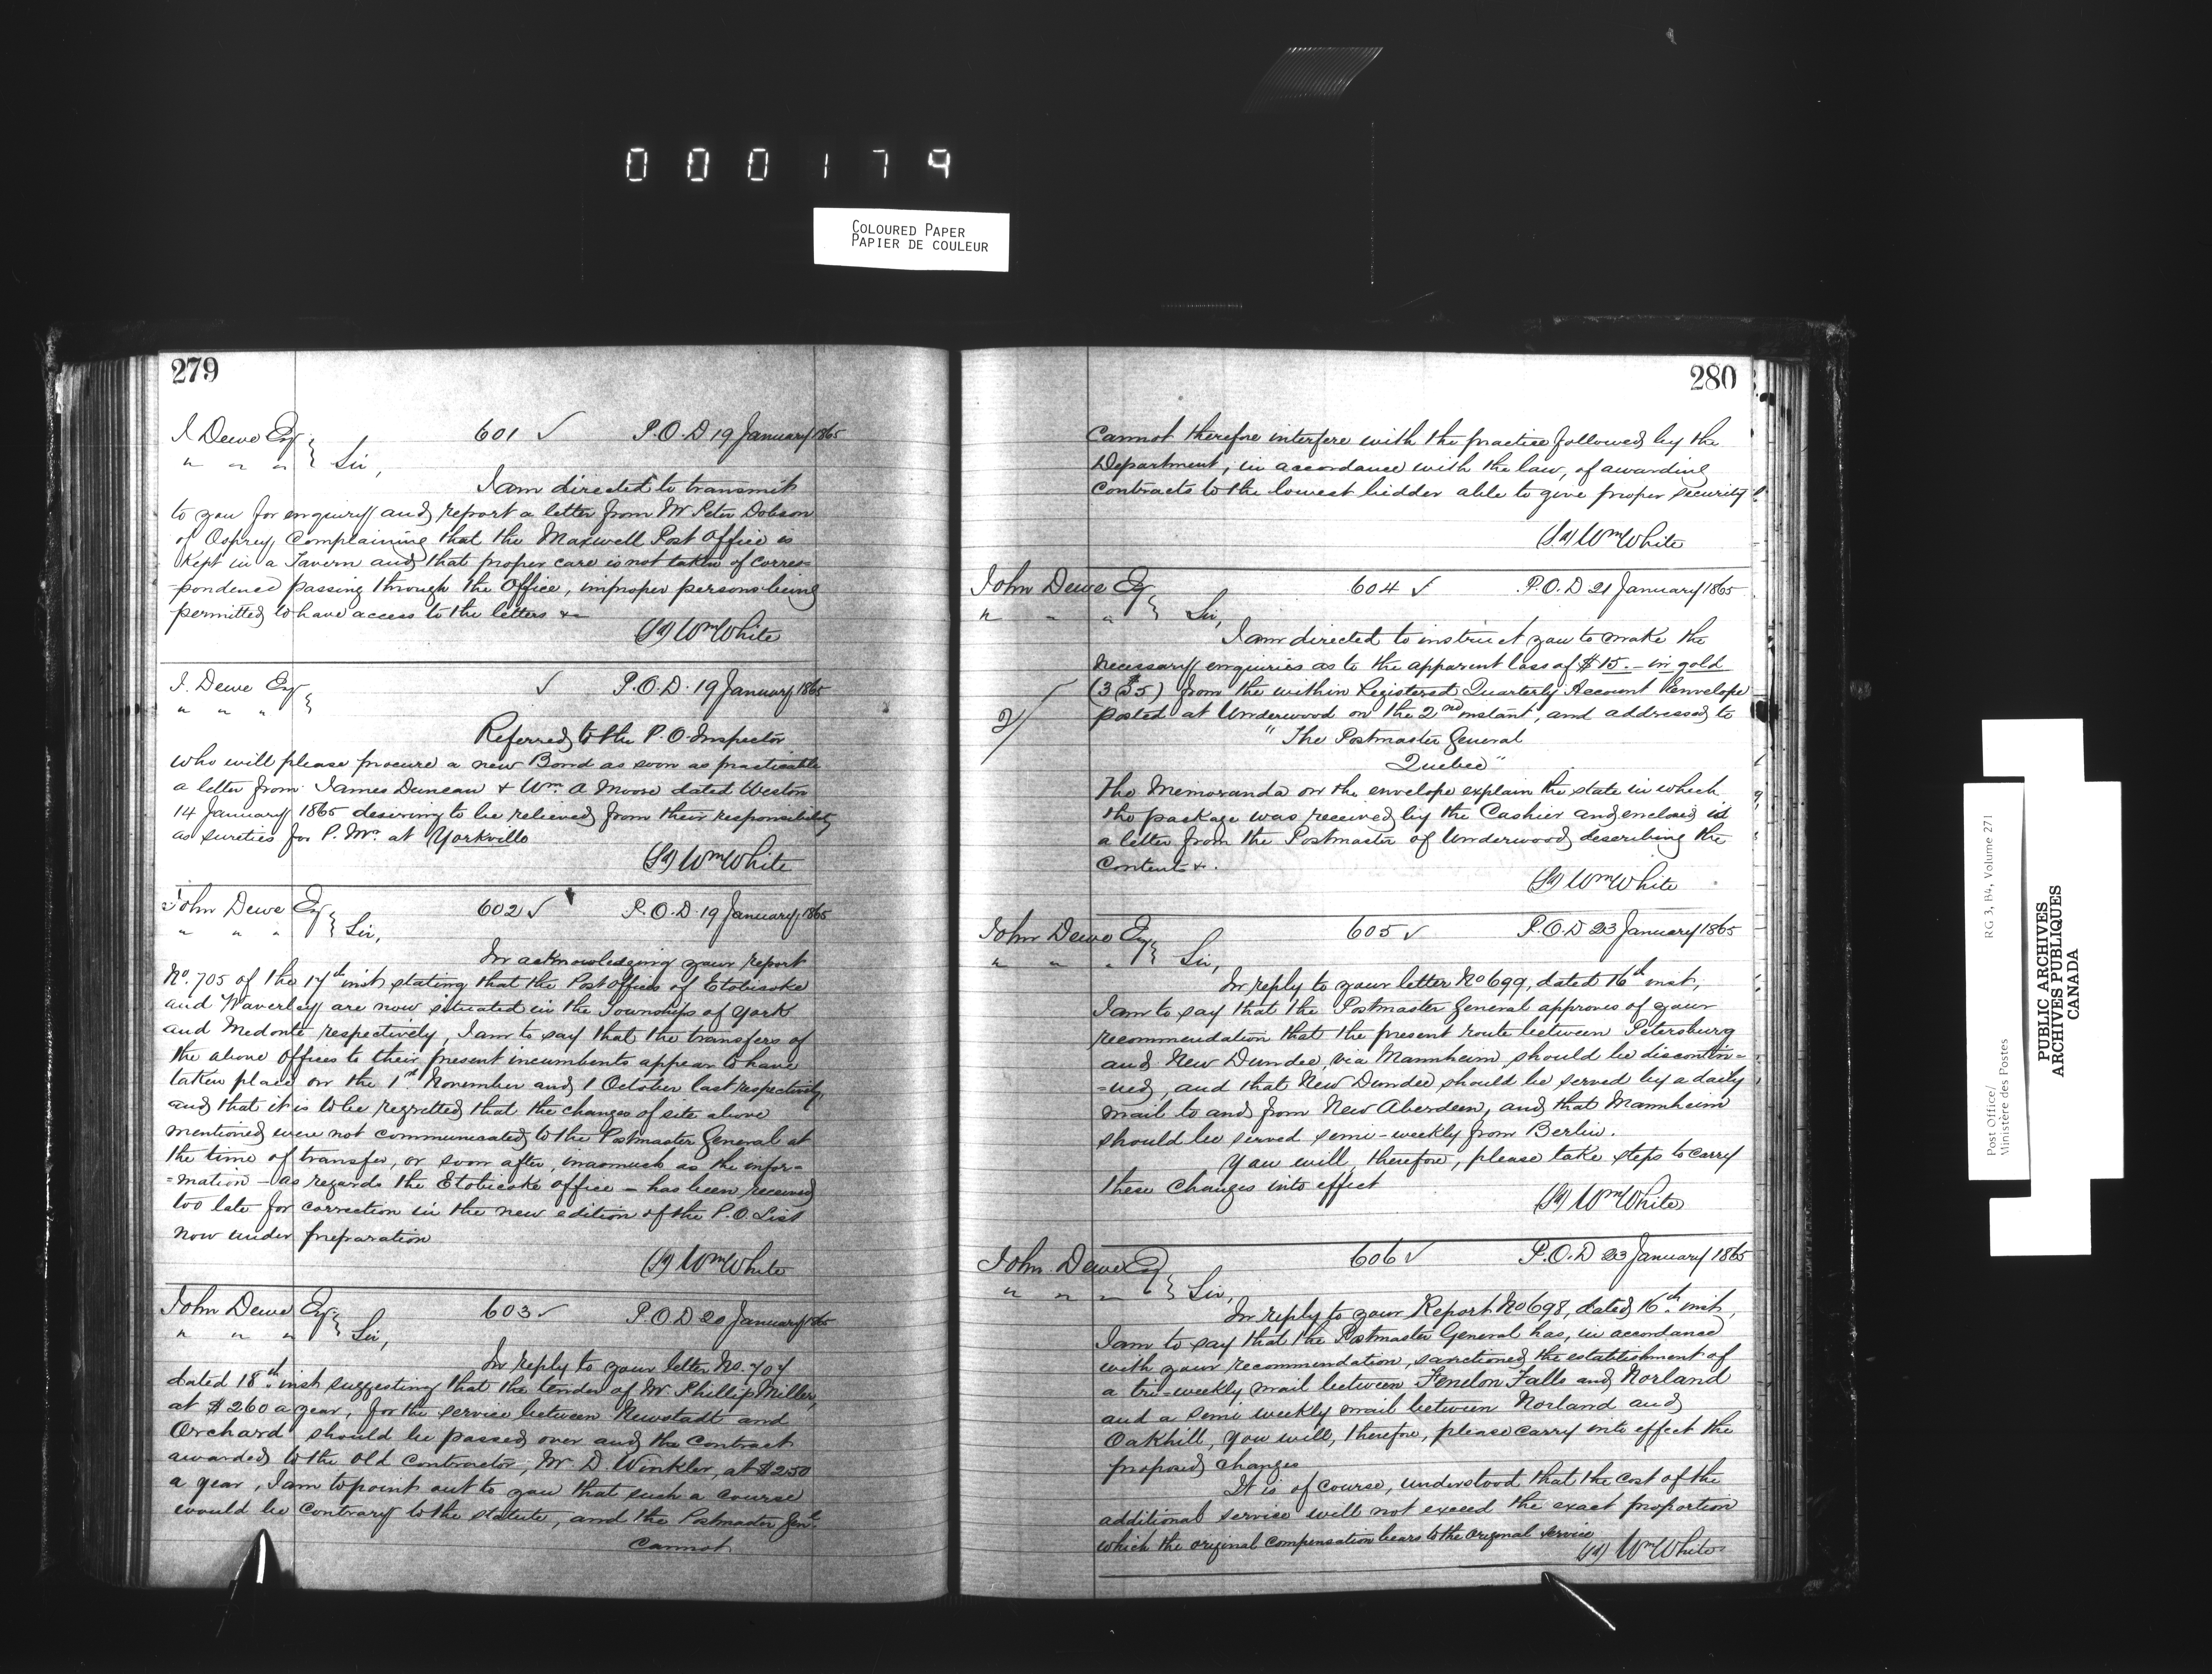 000179
COLOURED PAPER
PAPIER DE COULEUR
279
J Dewe Esq 601 ✓ P.O.D 19 January 1865
" " " Sir,
I am directed to transmit
to you for enquiry and report a letter from Mr Peter Dobson
of Osprey Complaining that the Maxwell Post Office is
Kept in a Tavern and that proper care is not taken of corres=
-pondence passing through the Office, improper persons being
permitted to have access to the letters &c
(Sd) Wm White
J. Dewe Esq ✓ P.O.D. 19 January 1865
" " "
Referred to the P.O. Inspector
who will please procure a new Bond as soon as practicable
a letter from James Duncan & Wm. A Moore dated Weston
14 January 1865 desiring to be relieved from their responsibility
as sureties for P.Mr. at Yorkville
(Sd) Wm White
John Dewe Esq 602 ✓ P.O.D. 19 January 1865
" " " Sir,
In acknowledging your report
No. 705 of the 17th inst stating that the Post Offices of Etobicoke
and Waverley are now situated in the Townships of York
and Medonte respectively, I am to say that the transfers of
the above offices to their present incumbents appear to have
taken place on the 1st November and 1 October last respectively,
and that it is to be regretted that the changes of site above
mentioned were not communicated to the Postmaster General at
the time of transfer, or soon after, inasmuch as the infor=
=mation - as regards the Etobicoke office - has been received
too late for correction in the new edition of the P.O. List
now under preparation
(Sd) Wm White
John Dewe Esq. 603 ✓ P.O.D 20 January 1865
" " " Sir,
In reply to your letter No. 707
dated 18th. inst suggesting that the tender of Mr. Phillip Miller,
at $260 a year, for the service between Neustadt and
Orchard should be passed over and the contract
awarded to the old Contractor, Mr. D. Winkler, at $250
a year, I am to point out to you that such a course
would be contrary to the statute, and the Postmaster Genl.
Cannot
280
Cannot therefore interfere with the practice followed by the
Department, in accordance with the law, of awarding
contracts to the lowest bidder able to give proper security.
(Sd) Wm White
John Dewe Esq 604 ✓ P.O.D 21 January 1865
" " " Sir,
I am directed to instruct you to make the
necessary enquiries as to the apparent loss of $15.- in gold
(3 $5) from the within Registered Quarterly Account Envelope
posted at Underwood on the 2nd instant, and addressed to
"The Postmaster General
Quebec"
The Memoranda on the envelope explain the state in which
the package was received by the Cashier and enclosed is
a letter from the Postmaster of Underwood describing the
contents &.
(Sd) Wm White
John Dewe Esq 605 ✓ P.O.D 23 January 1865
" " " Sir,
In reply to your letter No 699, dated 16th inst,
I am to say that the Postmaster General approves of your
recommendation that the present route between Petersburg
and New Dundee, via Mannheim, should be discontin=
=ued, and that New Dundee should be served by a daily
mail to and from New Aberdeen, and that Mannheim
should be served semi-weekly from Berlin.
You will, therefore, please take steps to carry
these changes into effect
(Sd) Wm White
John Dewe Esq 606 ✓ P.O.D 23 January 1865
" " " Sir,
In reply to your Report No 698, dated 16th. inst,
I am to say that the Postmaster General has, in accordance
with your recommendation, sanctioned the establishment of
a tri-weekly mail between Fenelon Falls and Norland
and a semi weekly mail between Norland and
Oakhill, you will, therefore, please carry into effect the
proposed changes
It is of course, understood that the cost of the
additional service will not exceed the exact proportion
which the original compensation bears to the original service
(Sd) Wm White
Post Office/ RG 3, B4, Volume 271
Ministère des Postes
PUBLIC ARCHIVES
ARCHIVES PUBLIQUES
CANADA